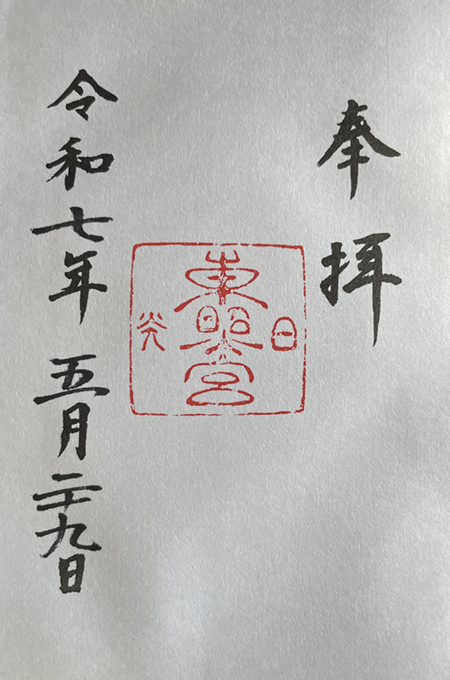 奉拝
日
東照宮
光
令和七年 五月二十九日